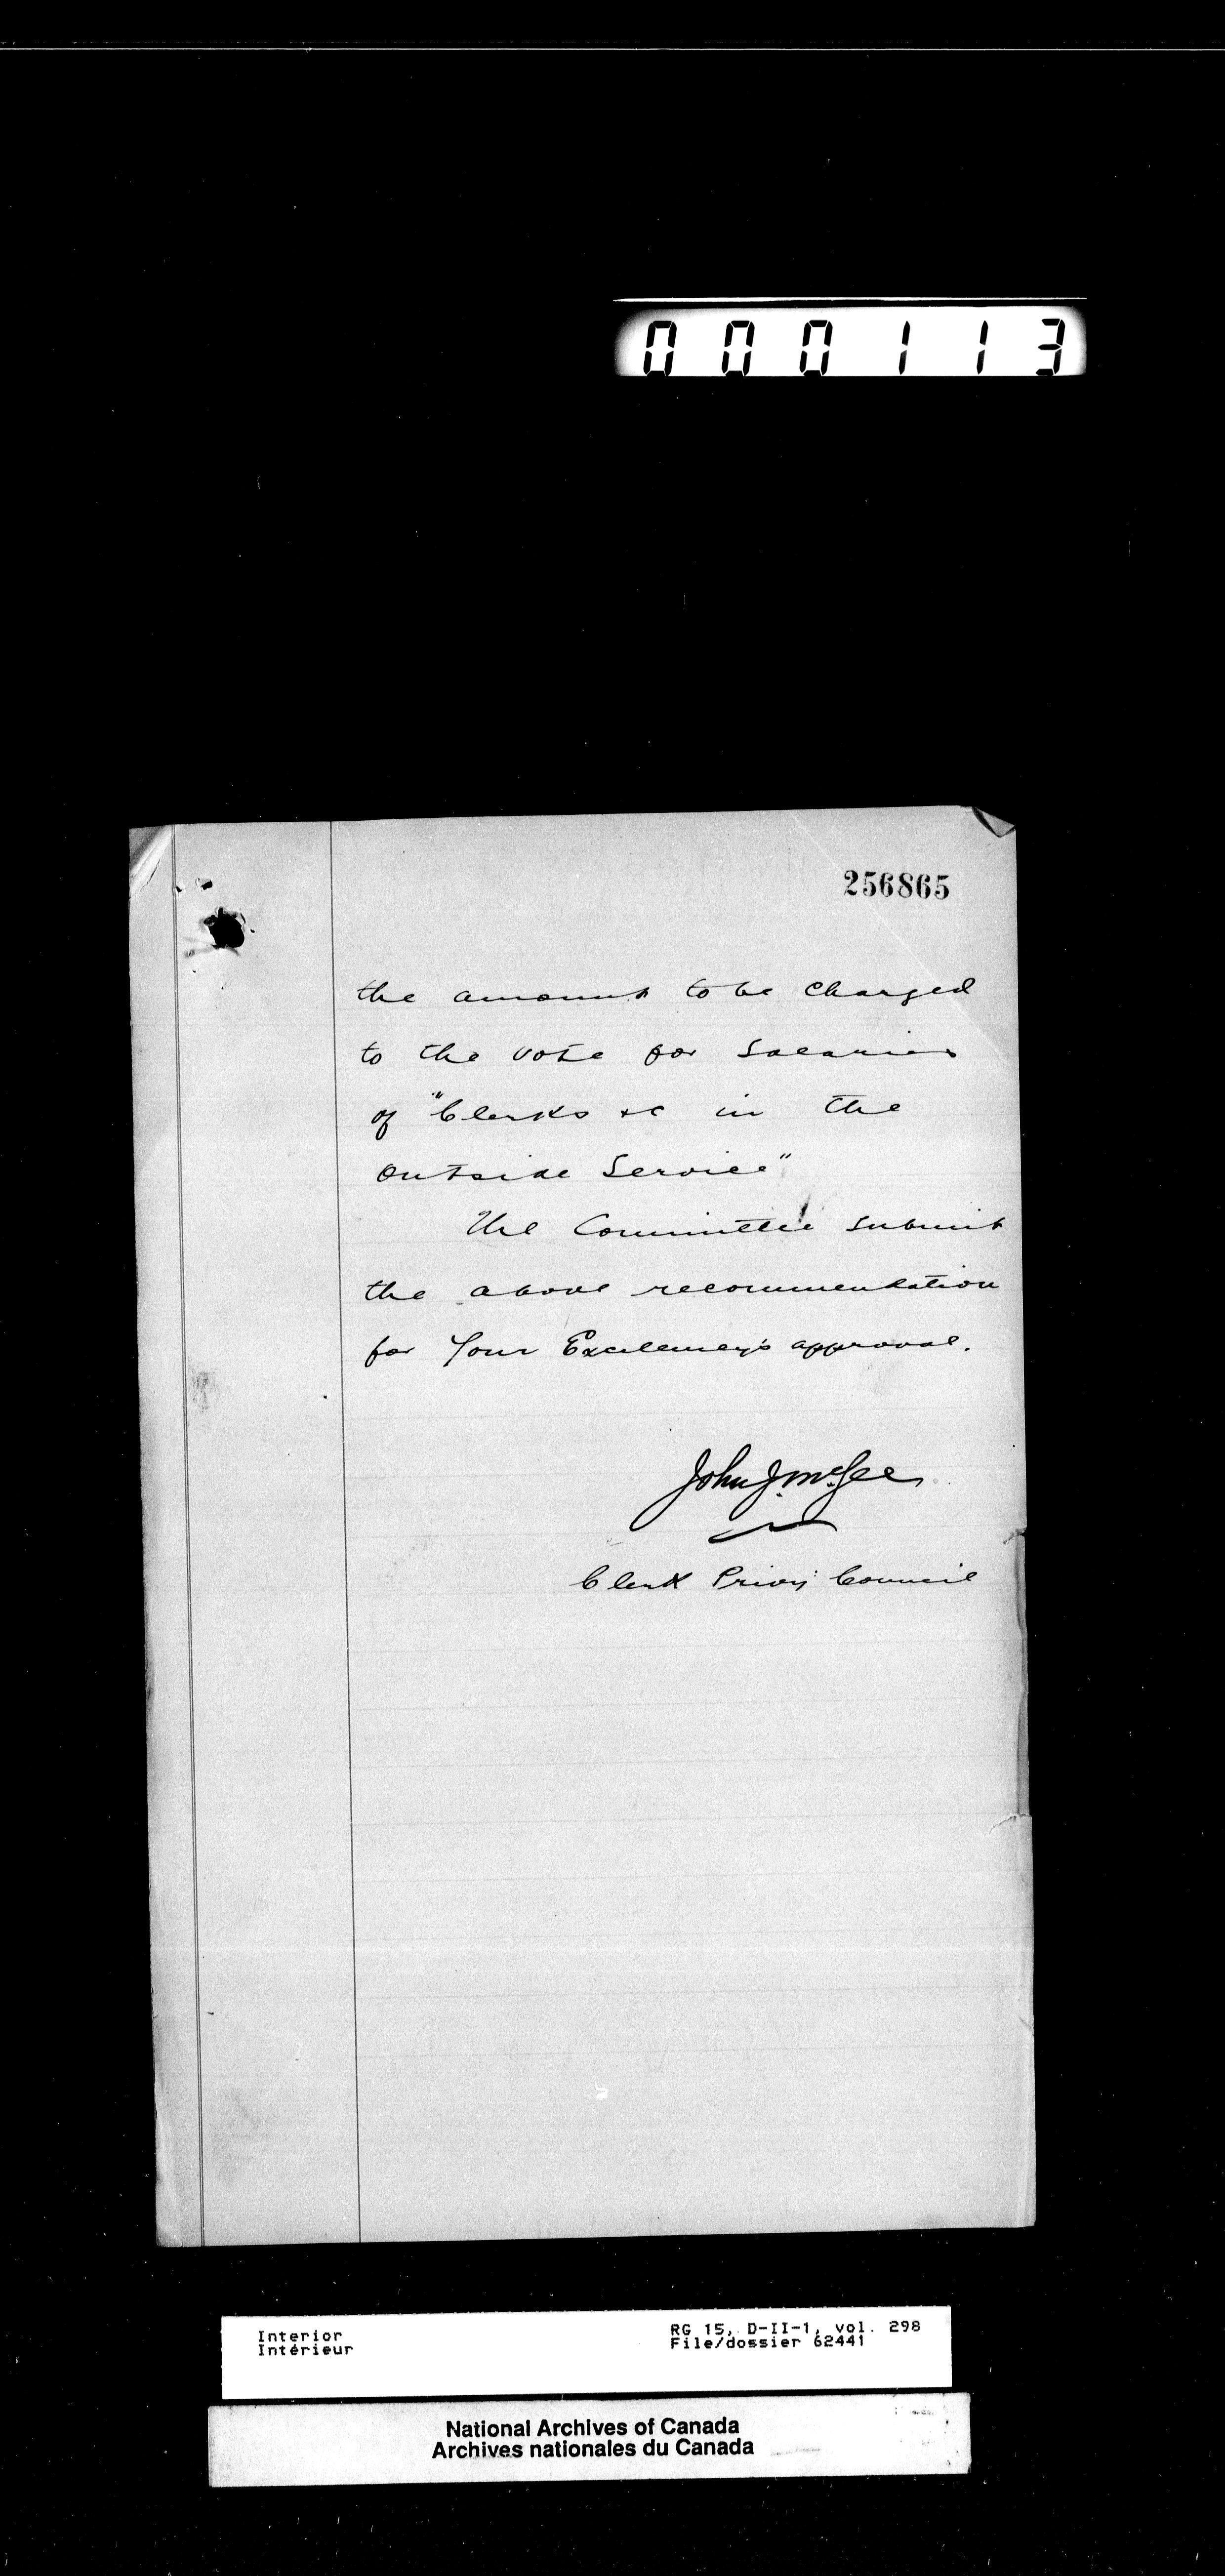 000113
256865
the amount to be charged
to the vote for salaries
of "Clerks &c in the
Outside Service"
The Committee submit
the above recommendation
for Your Excellency's approval.
John J. McGee
Clerk Privy Council
Interior
Intérieur
RG 15, D-II-1, vol. 298
File/dossier 62441
National Archives of Canada
Archives nationales du Canada